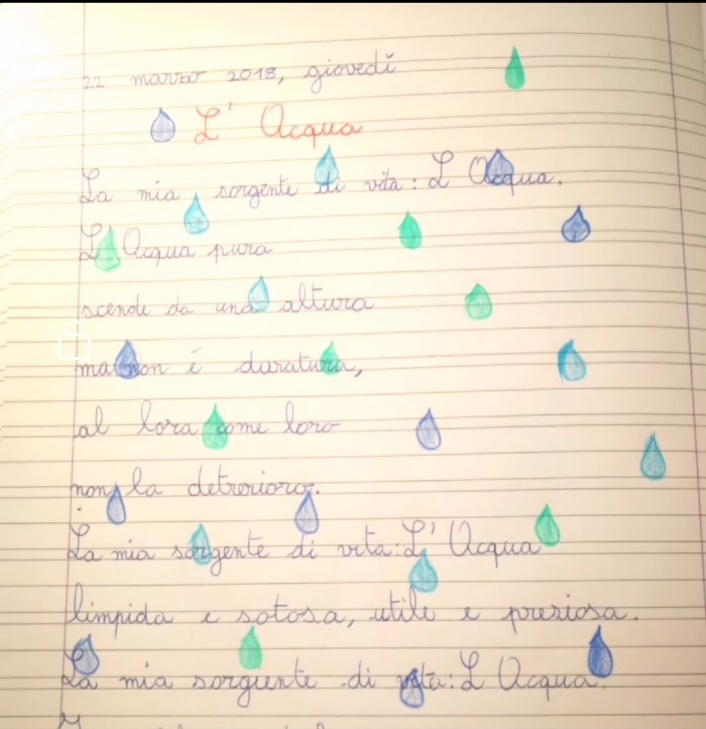 22 marzo 2018, giovedì
L' Acqua
La mia sorgente di vita: L Acqua.
L' Acqua pura
scende da una altura
ma non é duratura,
al lora come loro
non la detrerioro.
La mia sorgente di vita: L' Acqua
limpida e sotosa, utile e preziosa.
La mia sorguente di vita: L Acqua.